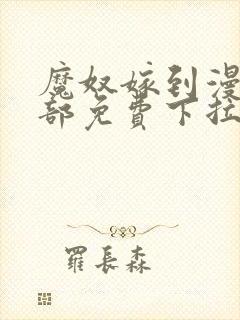 魔奴嫁到漫
部免費下拉
羅長森